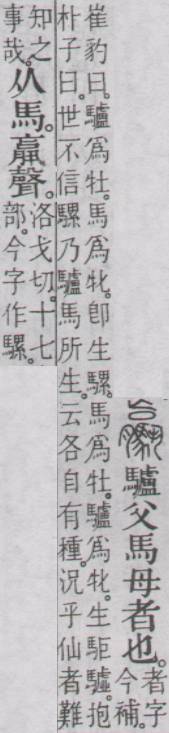 驢父馬母者也。
者字
今補。
崔豹曰。驢爲牡。馬爲牝。卽生騾。馬爲牡。驢爲牝。生駏驉。抱
朴子曰。世不信騾乃驢馬所生。云各自有種。況乎仙者難
知之
事哉。
从馬。𣎆聲。
洛戈切。十七
部。今字作騾。